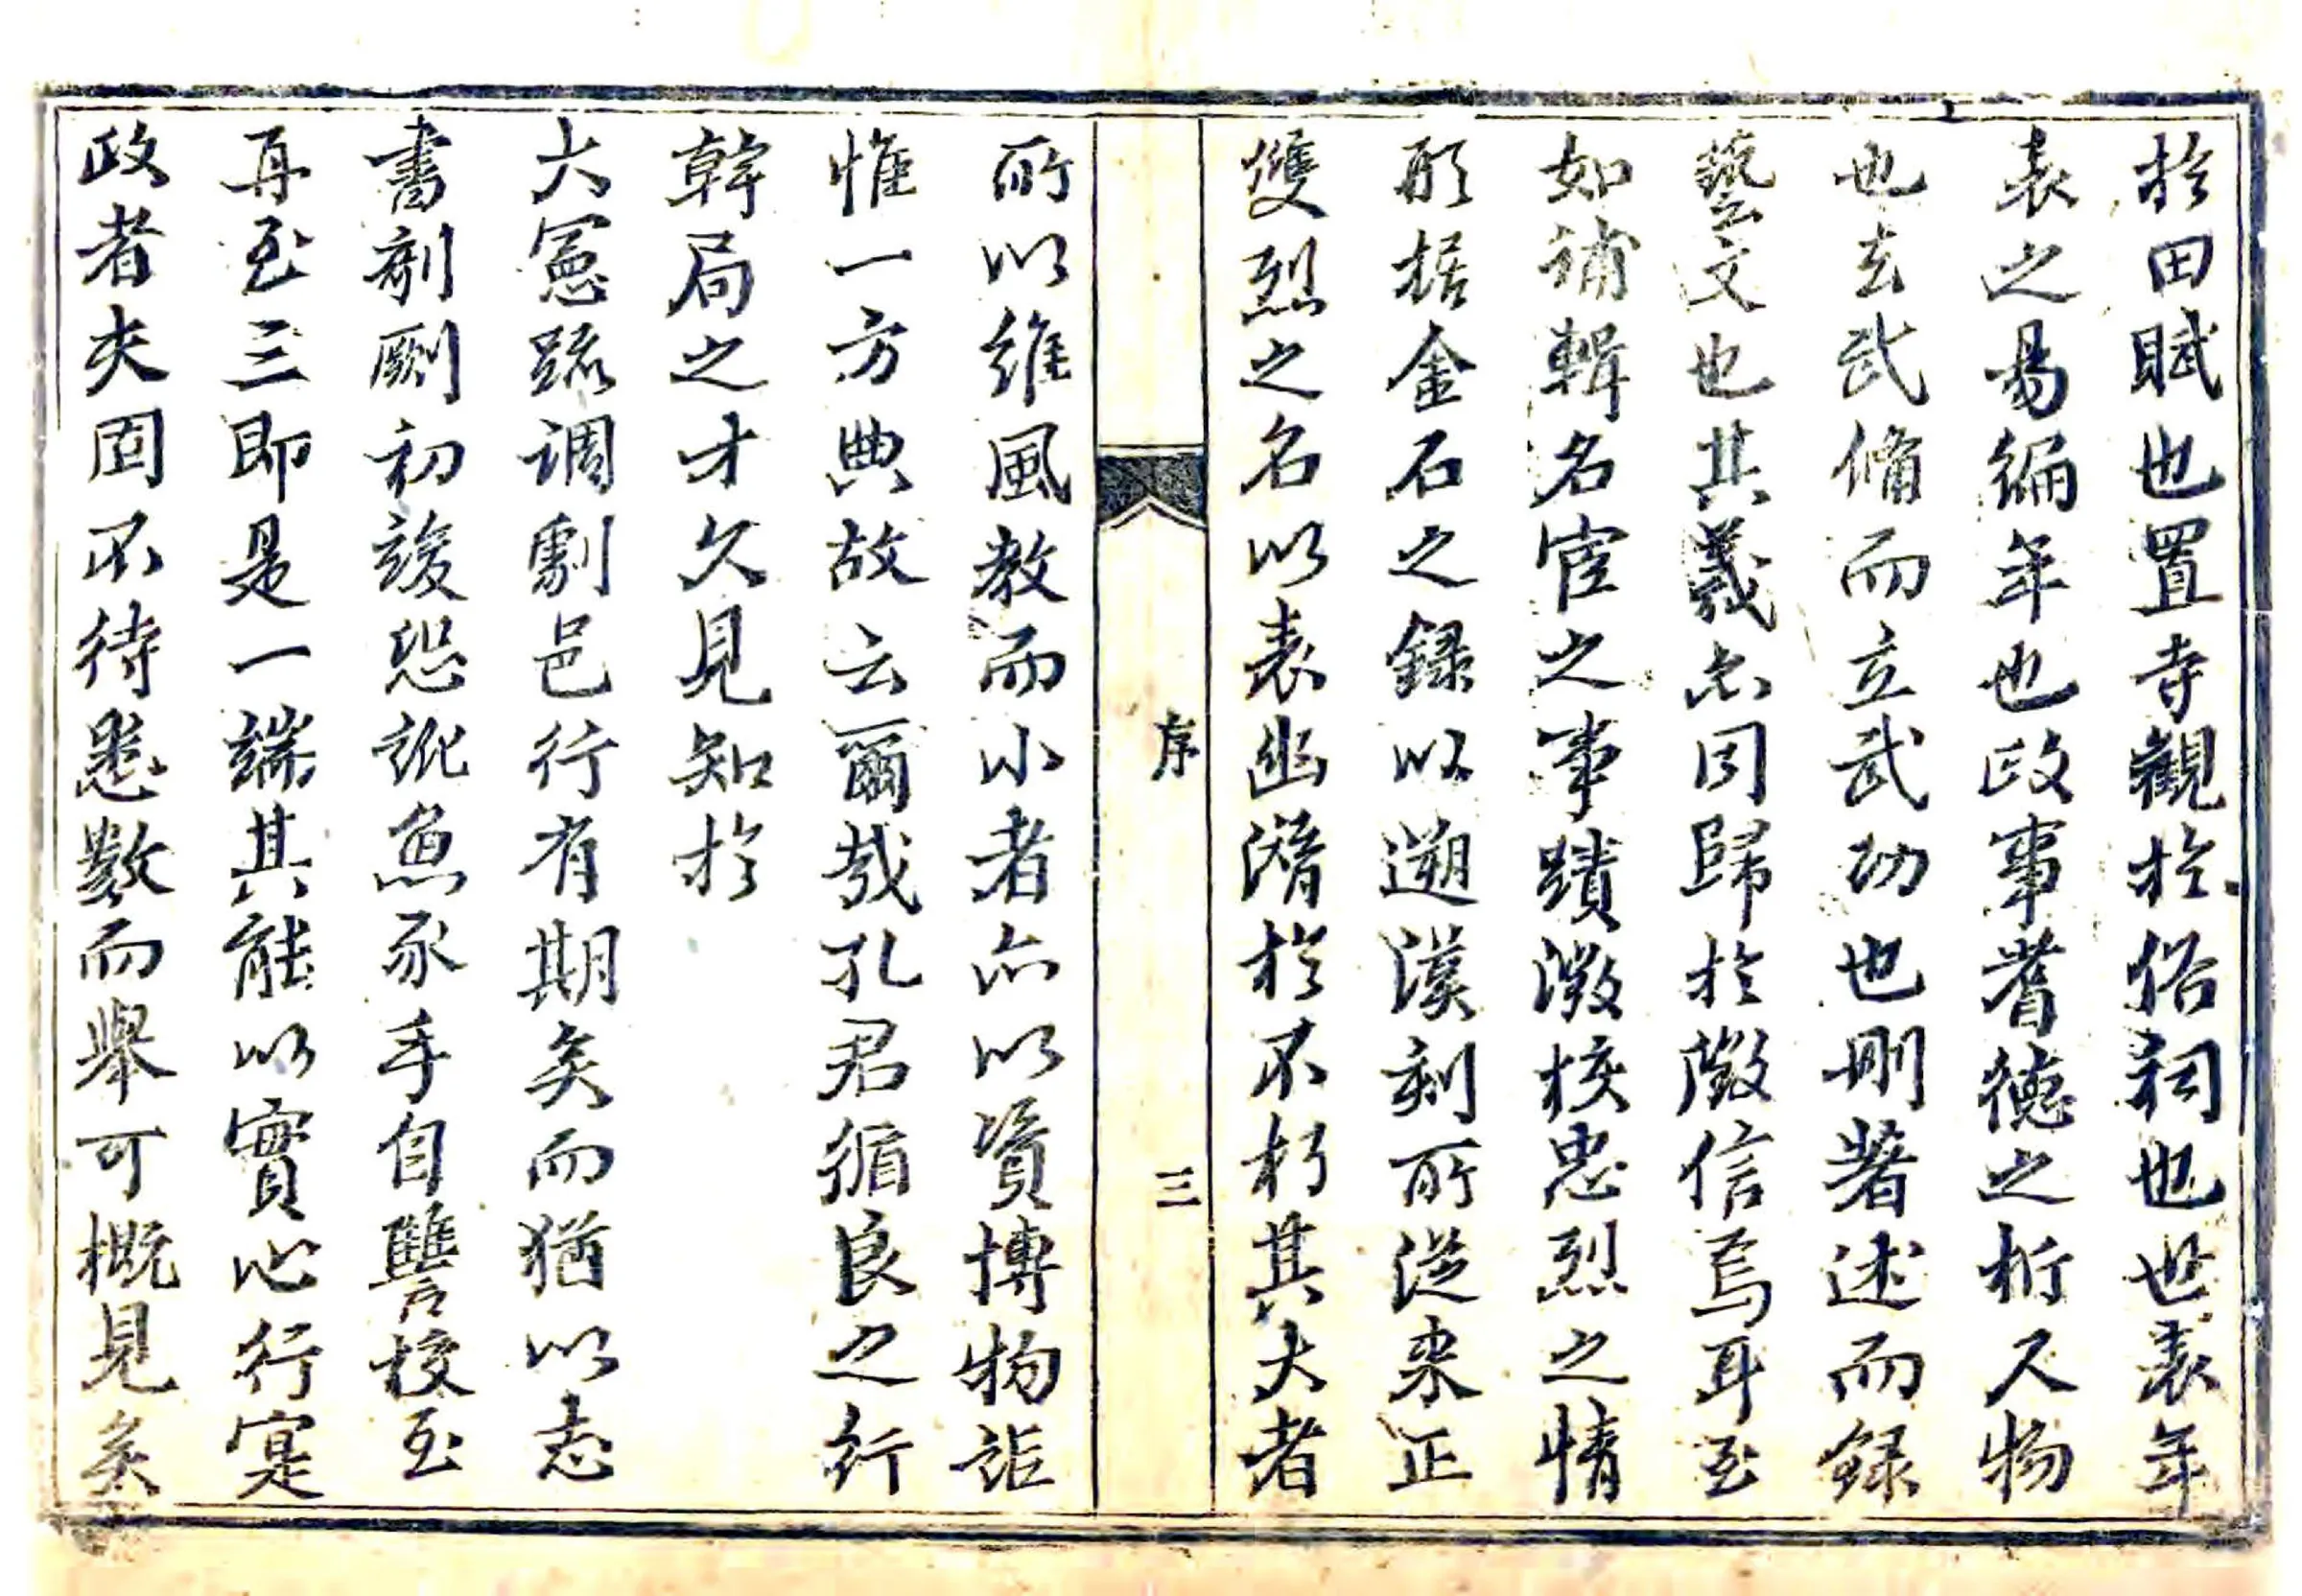 於田賦也置寺觀於俗祠也世表年
表之易編年也政事耆德之析人物
也去武脩而立武功也刪著述而錄
藝文也其義亦同歸於徵信焉耳至
如補輯名宦之事蹟激核忠烈之情
形據金石之錄以遡漢刻所從来正
雙烈之名以表幽潛於不朽其大者
序
三
所以維風教而小者亦以資博物詎
惟一方典故云爾哉孔君循良之行
幹局之才久見知於
大憲䟽調劇邑行有期矣而猶以志
書剞劂初竣恐訛魚豕手自讐校至
再至三即是一端其能以實心行寔
政者夫固不待悉數而舉可概見矣